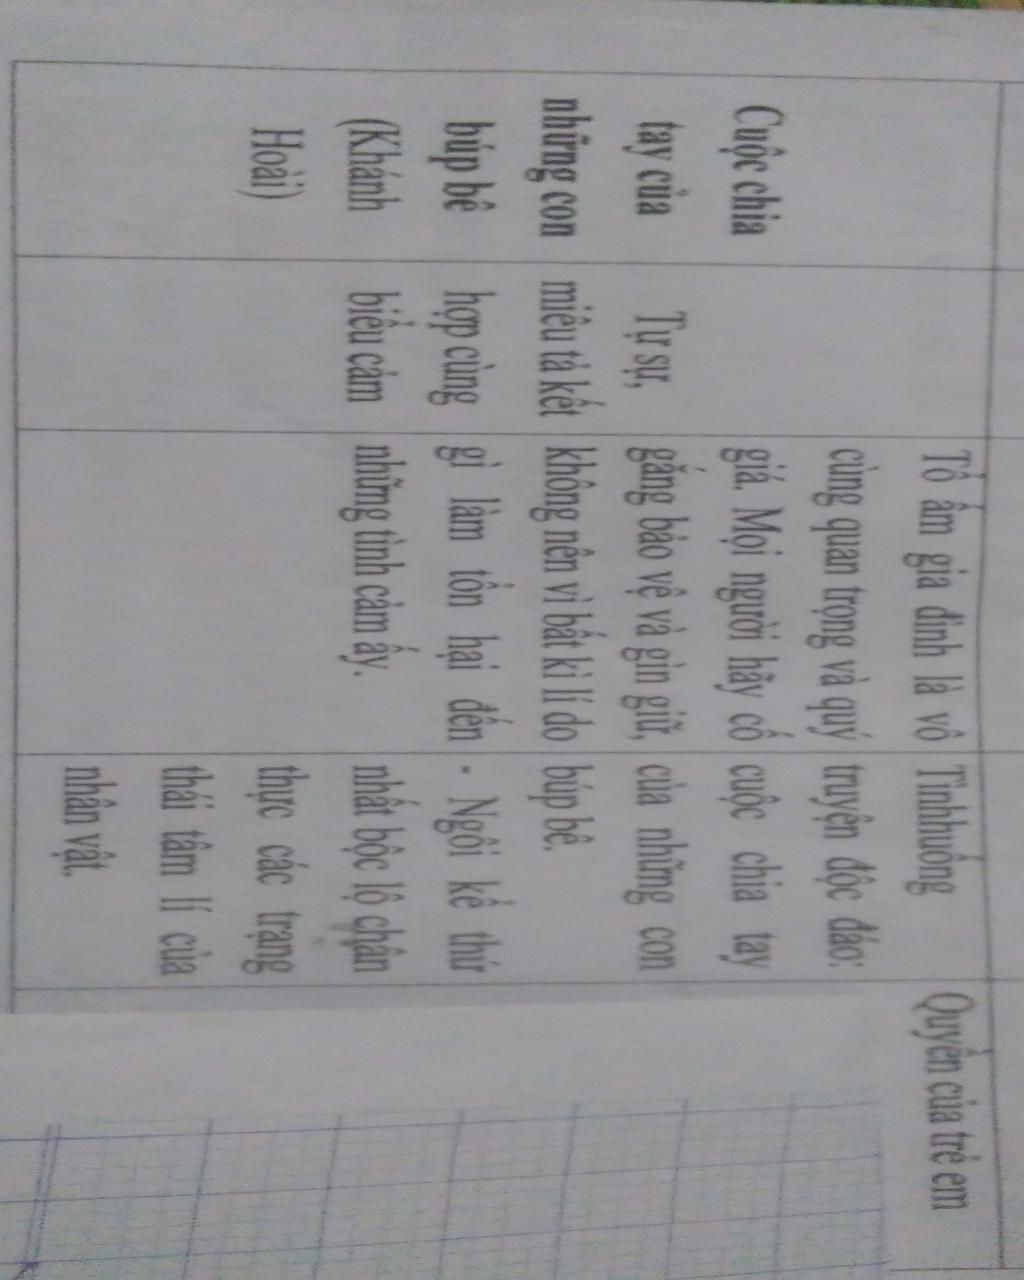 Cuộc chia
tay của
những con
búp bê
(Khánh
Hoài)
Tự sự,
miêu tả kết
hợp cùng
biểu cảm
Tổ ấm gia đình là vô
cùng quan trọng và quý
giá. Mọi người hãy cố
gắng bảo vệ và gìn giữ,
không nên vì bất kì lí do
gì làm tổn hại đến
những tình cảm ấy.
Tìnhhuống
truyện độc đáo:
cuộc chia tay
của những con
búp bê.
- Ngôi kể thứ
nhất bộc lộ chân
thực các trạng
thái tâm lí của
nhân vật.
Quyền của trẻ em